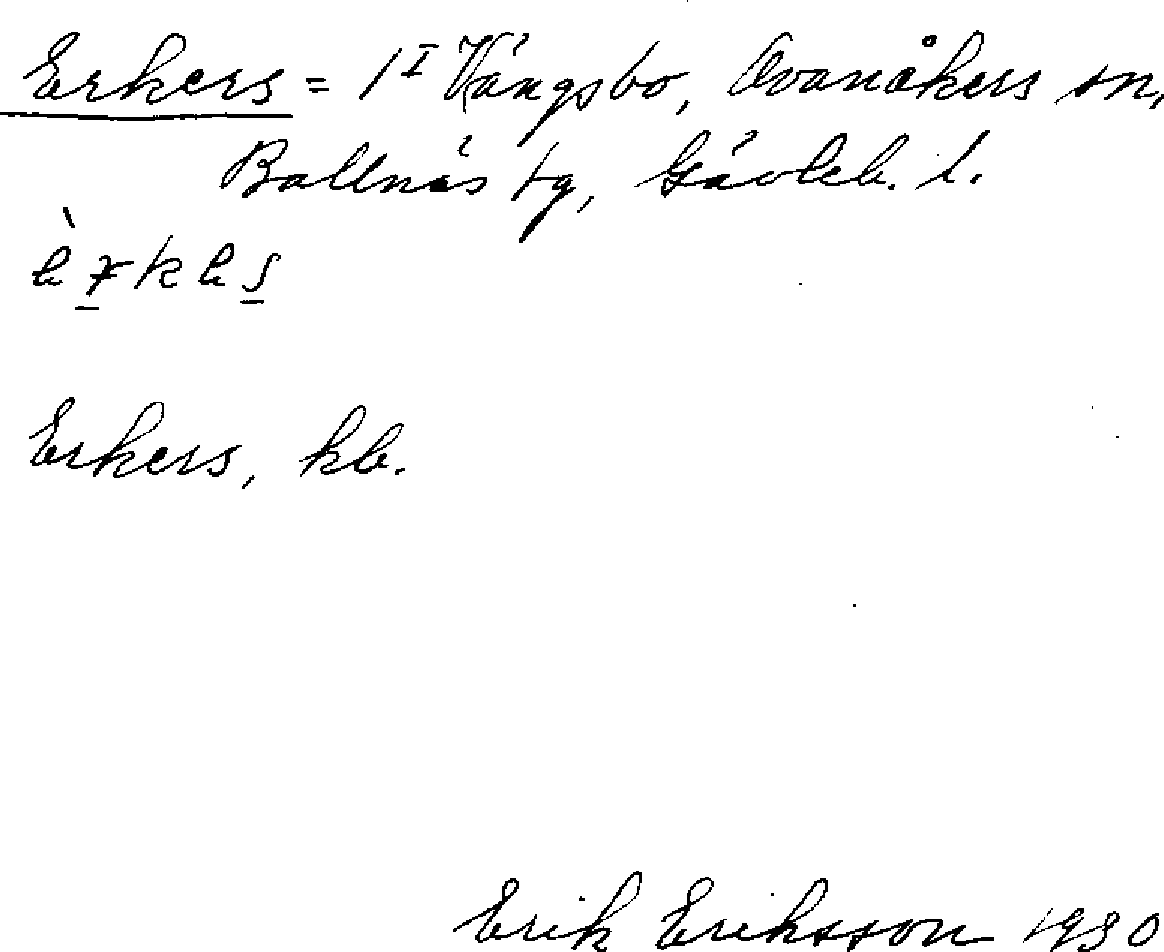 Erkers = 1 I Vängsbo, Ovanåkers sn,
Bollnäs tg, Gävleb. l.
Erkers, kb.
Erik Eriksson 1930